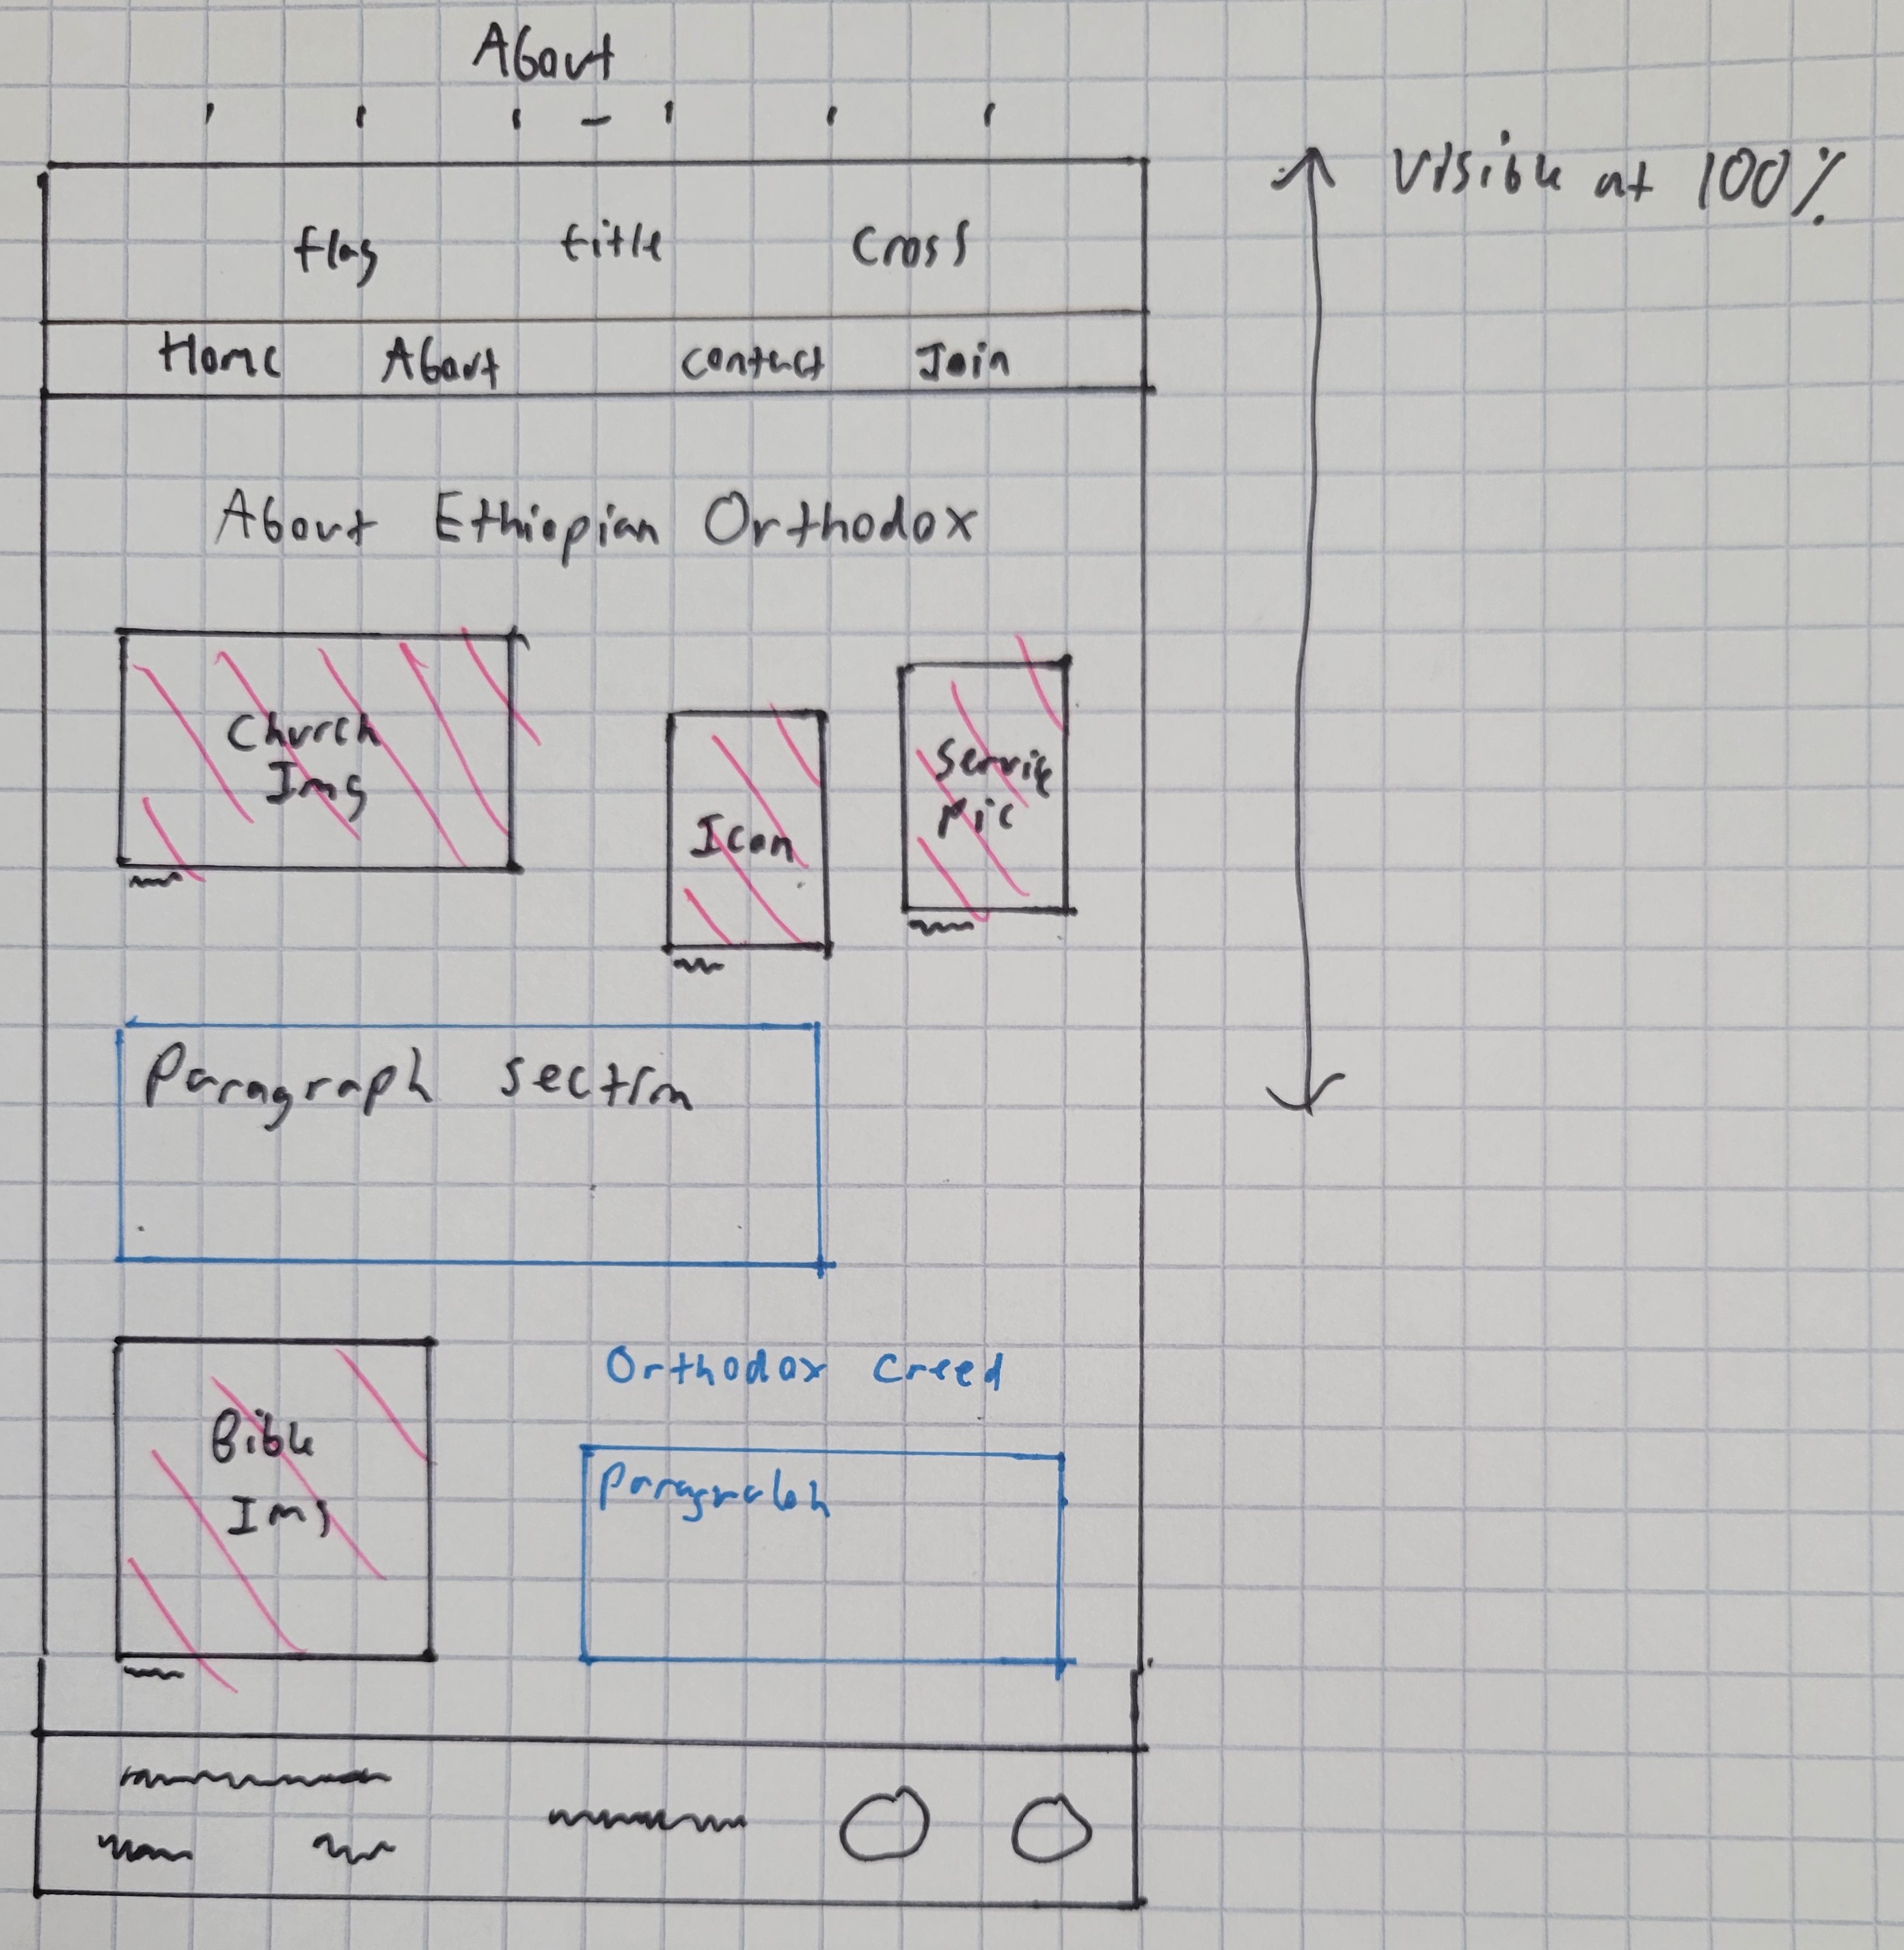 About
Visible at 100%
flag title Cross
Home About Contact Join
About Ethiopian Orthodox
Church
Img
Icon
Service
Pic
Paragraph section
Bible
Img
Orthodox Creed
Paragraph